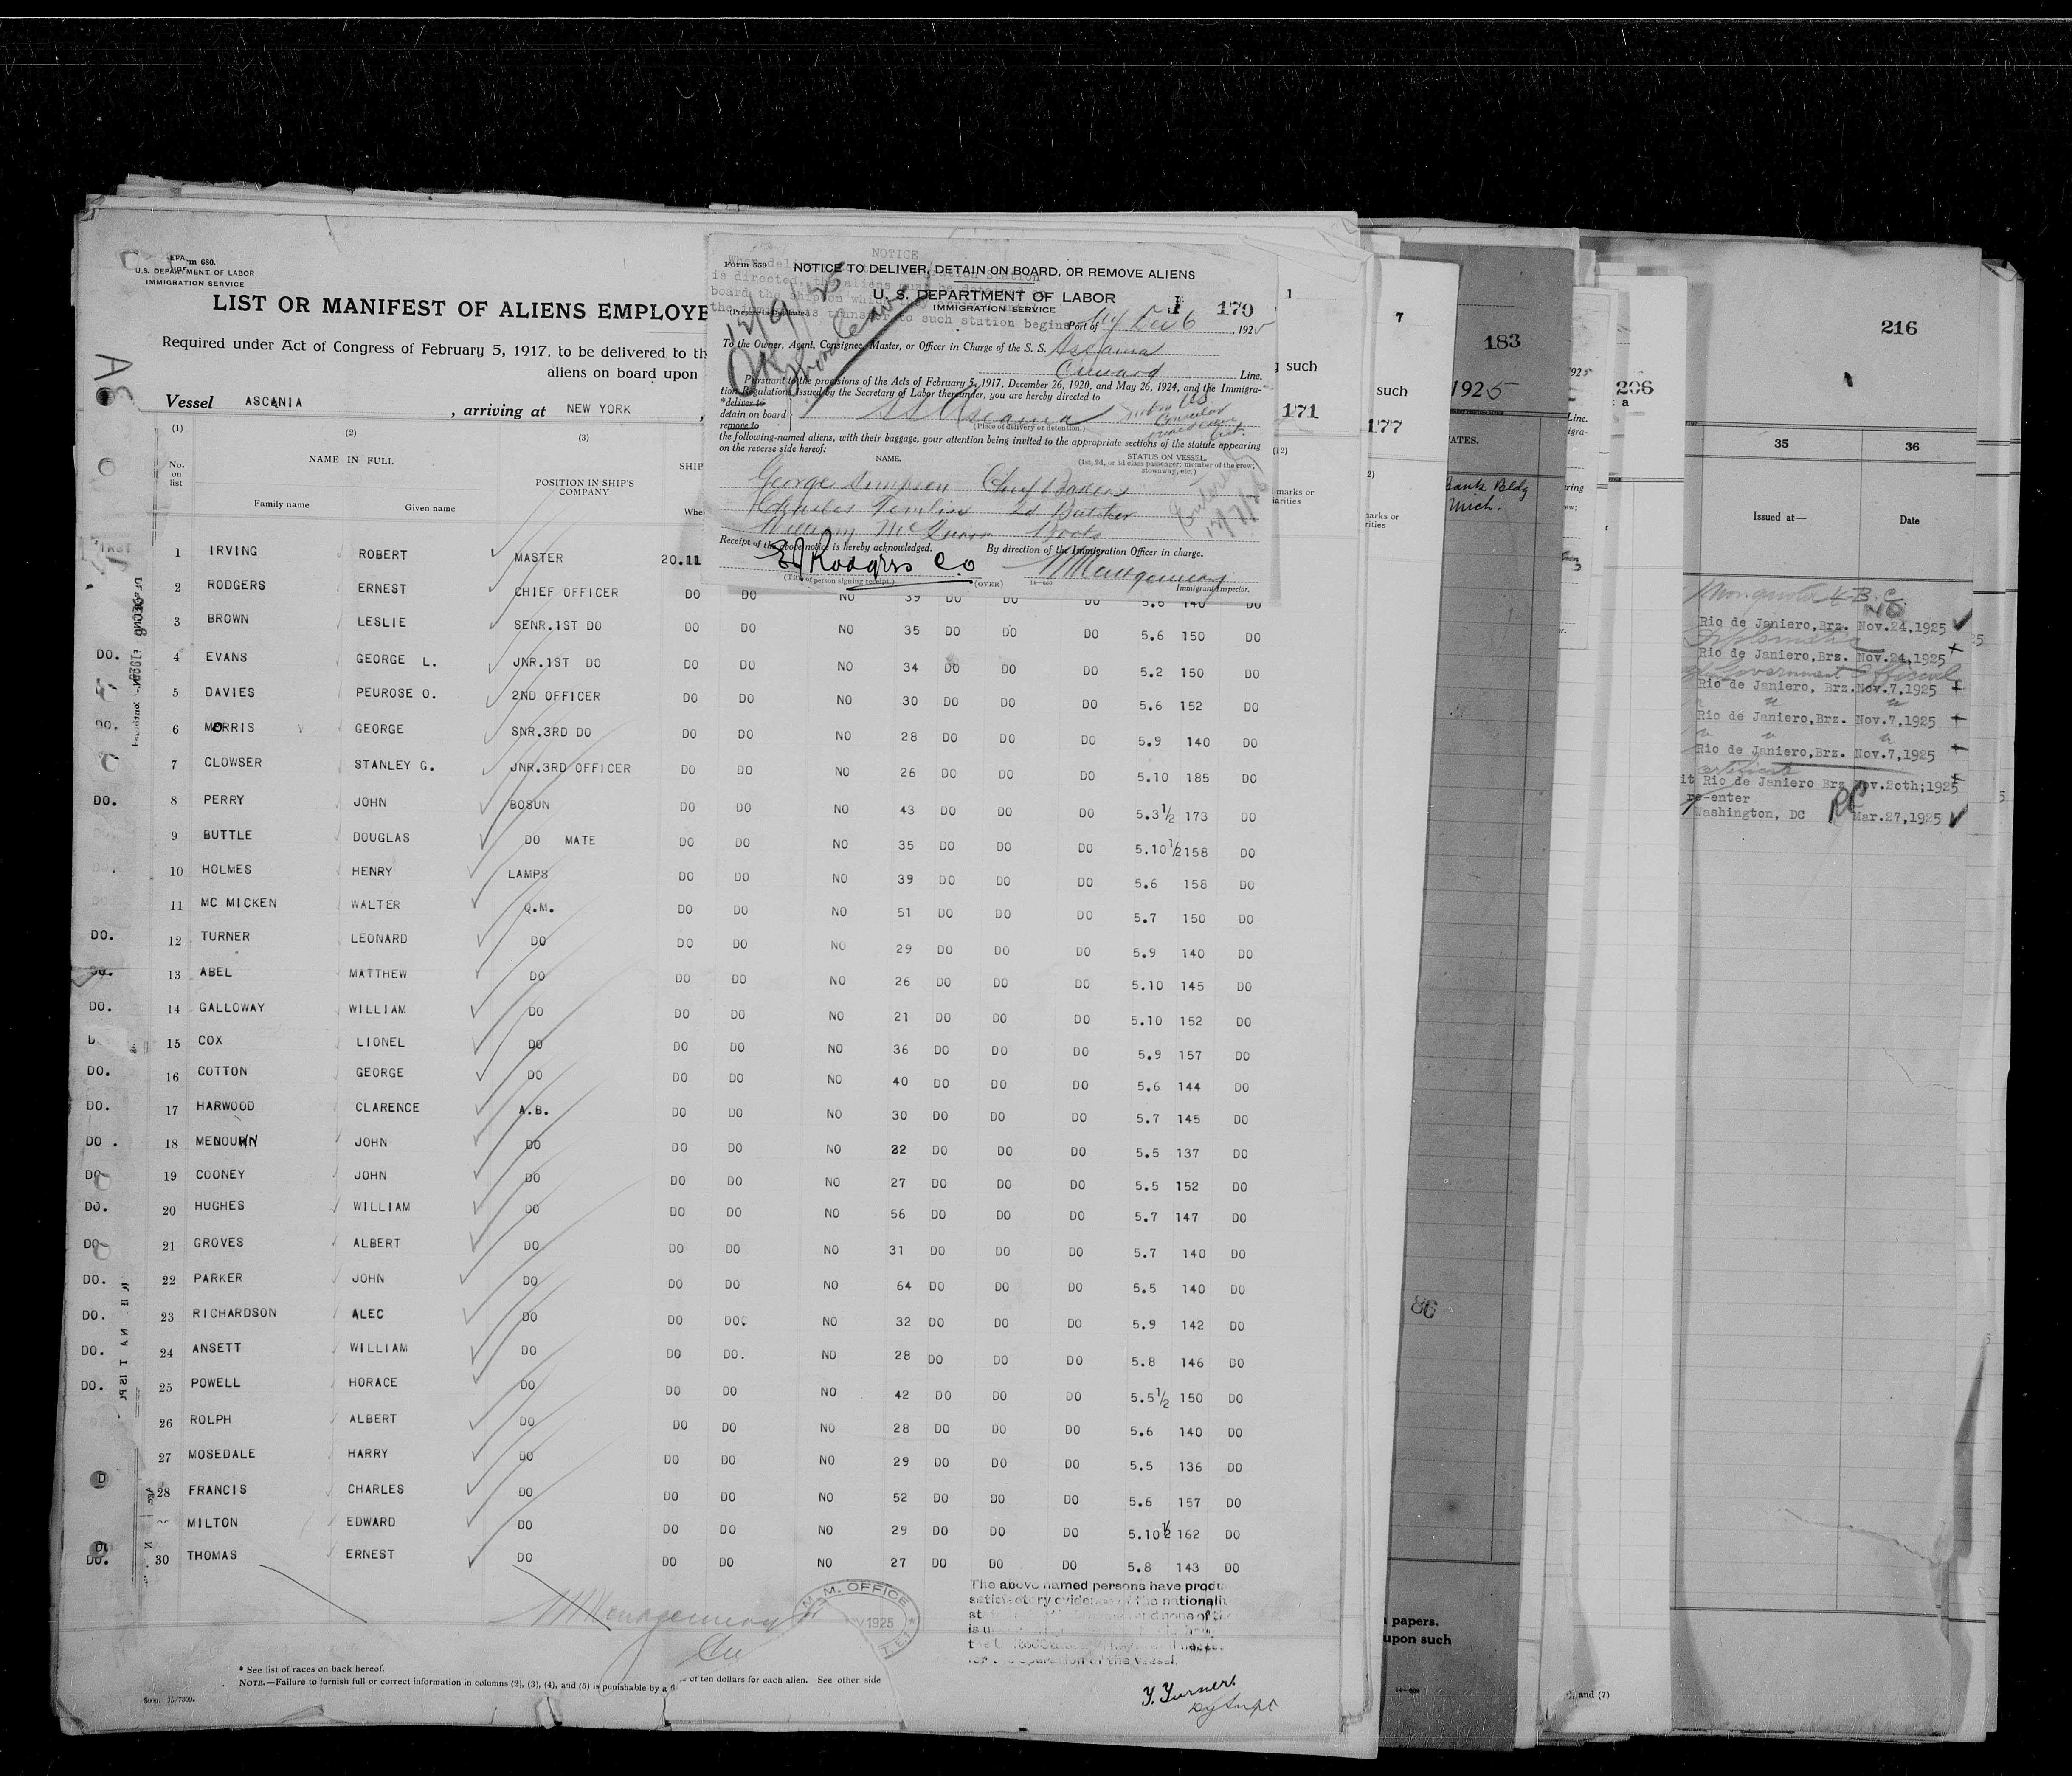 Form 680.
U.S. DEPARTMENT OF LABOR
IMMIGRATION SERVICE
LIST OR MANIFEST OF ALIENS EMPLOYE
Required under Act of Congress of February 5, 1917, to be delivered to th
aliens on board upon
Vessel ASCANIA , arriving at NEW YORK ,
(1) (2) (3)
No. on list
NAME IN FULL
Family name Given name
POSITION IN SHIP'S COMPANY
SHIP
Whe
NOTICE
Form 659
NOTICE TO DELIVER, DETAIN ON BOARD, OR REMOVE ALIENS
U. S. DEPARTMENT OF LABOR
IMMIGRATION SERVICE
170
(Prepare in Duplicate)
Port of NY Dec 6, 1925
To the Owner, Agent, Consignee, Master, or Officer in Charge of the S. S. Ascania
Cunard Line.
Pursuant to the provisions of the Acts of February 5, 1917, December 26, 1920, and May 26, 1924, and the Immigra-
tion Regulations issued by the Secretary of Labor thereunder, you are hereby directed to
*deliver to
detain on board SS Ascania
remove to
(Place of delivery or detention.)
the following-named aliens, with their baggage, your attention being invited to the appropriate sections of the statute appearing
on the reverse side hereof:
NAME. STATUS ON VESSEL.
(1st, 2d, or 3d class passenger; member of the crew; stowaway, etc.)
George Simpson Chief Baker
Tomlin 2d Butcher
William Mc
Receipt of the above notice is hereby acknowledged. By direction of the Immigration Officer in charge.
E J Rodgers Co
(Title of person signing receipt.) (OVER) Immigrant Inspector.
1 IRVING ROBERT MASTER 20.11
2 RODGERS ERNEST CHIEF OFFICER DO DO NO 39 DO DO DO 5.6 140 DO
3 BROWN LESLIE SENR.1ST DO DO DO NO 35 DO DO DO 5.6 150 DO
DO. 4 EVANS GEORGE L. JNR.1ST DO DO DO NO 34 DO DO DO 5.2 150 DO
5 DAVIES PEUROSE O. 2ND OFFICER DO DO NO 30 DO DO DO 5.6 152 DO
DO. 6 MORRIS GEORGE SNR.3RD DO DO DO NO 28 DO DO DO 5.9 140 DO
7 CLOWSER STANLEY G. JNR.3RD OFFICER DO DO NO 26 DO DO DO 5.10 185 DO
DO. 8 PERRY JOHN BOSUN DO DO NO 43 DO DO DO 5.3½ 173 DO
9 BUTTLE DOUGLAS DO MATE DO DO NO 35 DO DO DO 5.10½ 158 DO
10 HOLMES HENRY LAMPS DO DO NO 39 DO DO DO 5.6 158 DO
11 MC MICKEN WALTER Q.M. DO DO NO 51 DO DO DO 5.7 150 DO
DO. 12 TURNER LEONARD DO DO DO NO 29 DO DO DO 5.9 140 DO
DO. 13 ABEL MATTHEW DO DO DO NO 26 DO DO DO 5.10 145 DO
DO. 14 GALLOWAY WILLIAM DO DO DO NO 21 DO DO DO 5.10 152 DO
15 COX LIONEL DO DO DO NO 36 DO DO DO 5.9 157 DO
DO. 16 COTTON GEORGE DO DO DO NO 40 DO DO DO 5.6 144 DO
DO. 17 HARWOOD CLARENCE A.B. DO DO NO 30 DO DO DO 5.7 145 DO
DO . 18 JOHN DO DO DO NO 22 DO DO DO 5.5 137 DO
DO 19 COONEY JOHN DO DO DO NO 27 DO DO DO 5.5 152 DO
DO. 20 HUGHES WILLIAM DO DO DO NO 56 DO DO DO 5.7 147 DO
DO 21 GROVES ALBERT DO DO DO NO 31 DO DO DO 5.7 140 DO
DO. 22 PARKER JOHN DO DO DO NO 64 DO DO DO 5.5 140 DO
DO. 23 RICHARDSON ALEC DO DO DO. NO 32 DO DO DO 5.9 142 DO
DO. 24 ANSETT WILLIAM DO DO DO. NO 28 DO DO DO 5.8 146 DO
DO. 25 POWELL HORACE DO DO DO NO 42 DO DO DO 5.5½ 150 DO
26 ROLPH ALBERT DO DO DO NO 28 DO DO DO 5.6 140 DO
27 MOSEDALE HARRY DO DO DO NO 29 DO DO DO 5.5 136 DO
28 FRANCIS CHARLES DO DO DO NO 52 DO DO DO 5.6 157 DO
MILTON EDWARD DO DO DO NO 29 DO DO DO 5.10½ 162 DO
DO. 30 THOMAS ERNEST DO DO DO NO 27 DO DO DO 5.8 143 DO
M. OFFICE
1925
The above named persons have produ
satisfactory evidence of the nationalit
for the operation of the vessel.
* See list of races on back hereof.
NOTE.—Failure to furnish full or correct information in columns (2), (3), (4), and (5) is punishable by a fi
e of ten dollars for each alien. See other side
1
g such
171
(12)
marks or
iarities
7
such
177
183
1925
ATES.
Bank Bldg
Mich.
86
papers.
upon such
206
a
), and (7)
216
35 36
Issued at— Date
Rio de Janiero,Brz. Nov.24,1925
Diplomatic
Rio de Janiero,Brz. Nov.24,1925
Government Official
Rio de Janiero, Brz. Nov.7,1925
Rio de Janiero,Brz. Nov.7,1925
Rio de Janiero,Brz. Nov.7,1925
certificate
it Rio de Janiero Brz Nov.20th;1925
re-enter
Washington, DC Mar.27,1925